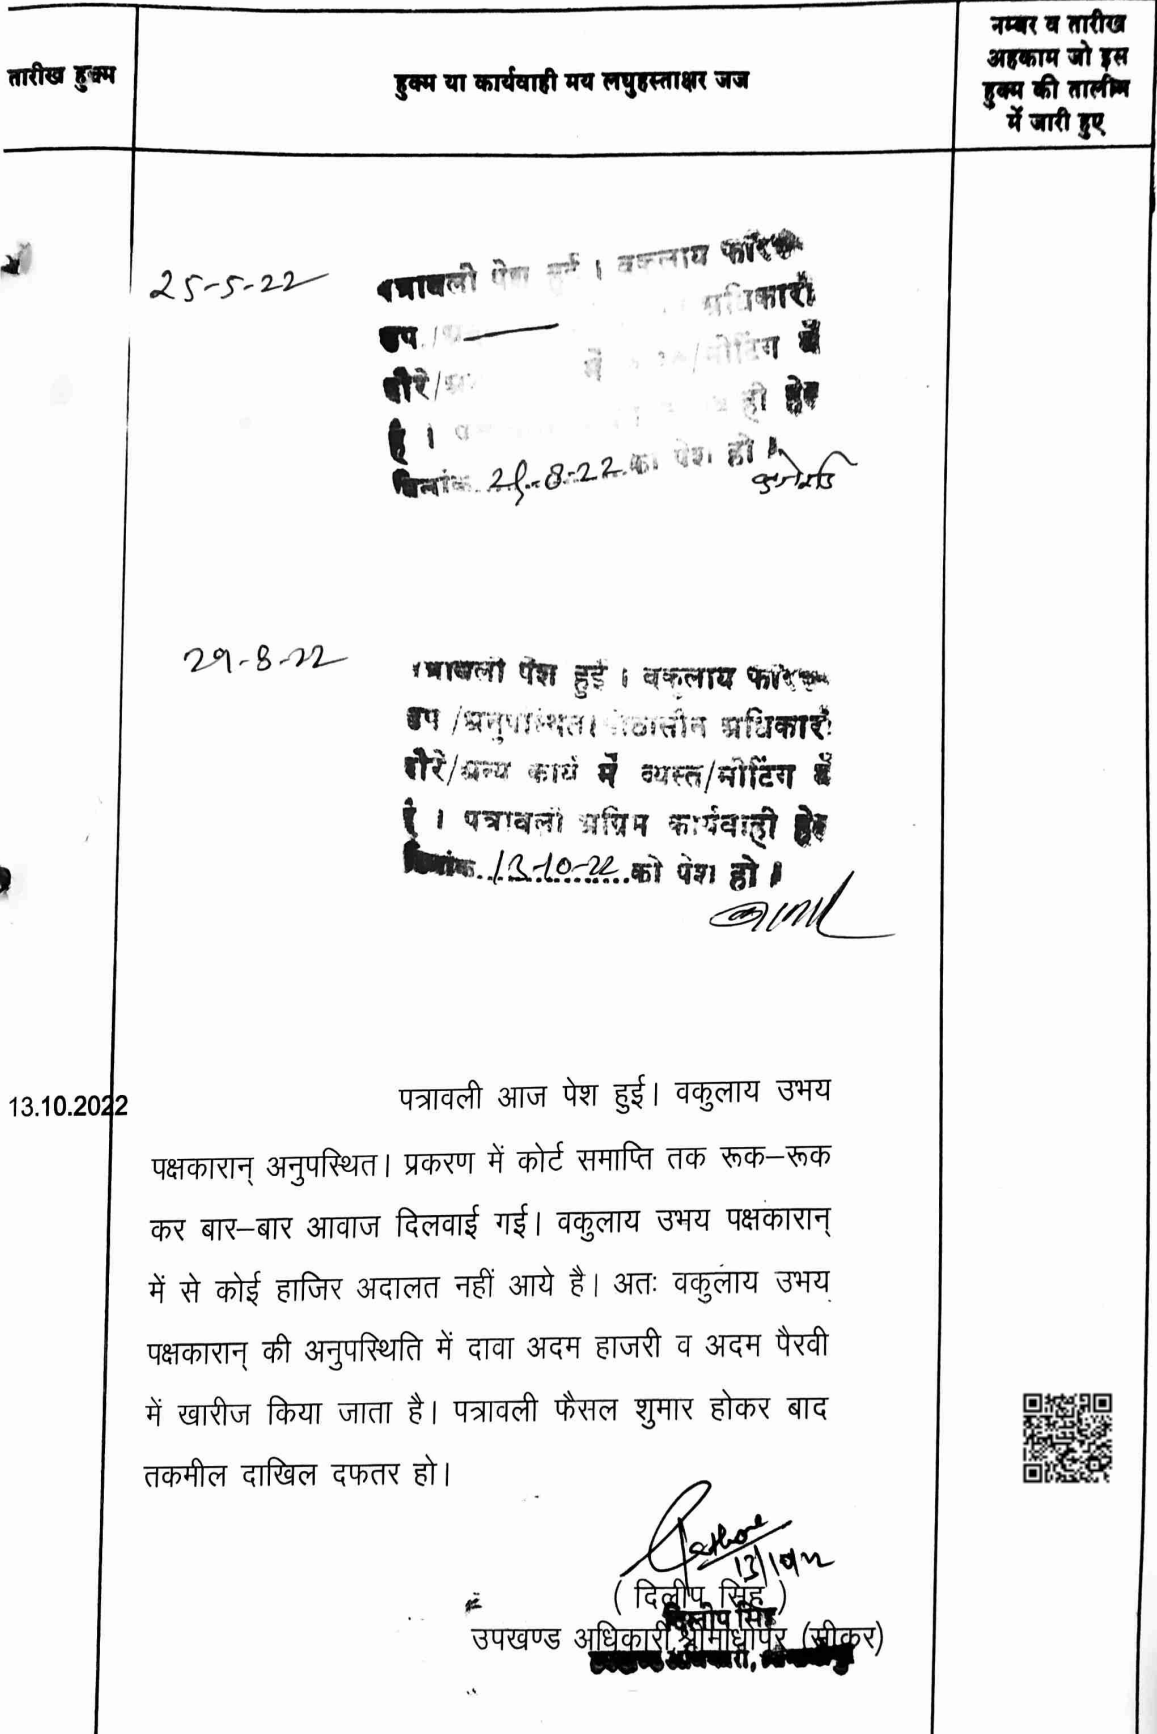 तारीख हुक्म
हुक्म या कार्यवाही मय लघुहस्ताक्षर जज
नम्बर व तारीख
अहकाम जो इस
हुक्म की तालीम
में जारी हुए
25-5-22
पत्रावली पेश हुई । वकुलाय
उप / अधिकारी
दौरे/ में /मीटिंग में
है । ही हेतु
दिनांक 29-8-22 को पेश हो ।
29-8-22
पत्रावली पेश हुई । वकुलाय
उप /अनुपस्थित। पीठासीन अधिकारी
दौरे/अन्य कार्य में व्यस्त/मीटिंग में
है । पत्रावली अग्रिम कार्यवाही हेतु
दिनांक 13-10-22 को पेश हो ।
13.10.2022
पत्रावली आज पेश हुई। वकुलाय उभय
पक्षकारान् अनुपस्थित। प्रकरण में कोर्ट समाप्ति तक रूक–रूक
कर बार–बार आवाज दिलवाई गई। वकुलाय उभय पक्षकारान्
में से कोई हाजिर अदालत नहीं आये है। अतः वकुलाय उभय
पक्षकारान् की अनुपस्थिति में दावा अदम हाजरी व अदम पैरवी
में खारीज किया जाता है। पत्रावली फैसल शुमार होकर बाद
तकमील दाखिल दफतर हो।
13/10/22
( दिलीप सिंह )
दिलीप सिंह
उपखण्ड अधिकारी, श्रीमाधोपुर (सीकर)